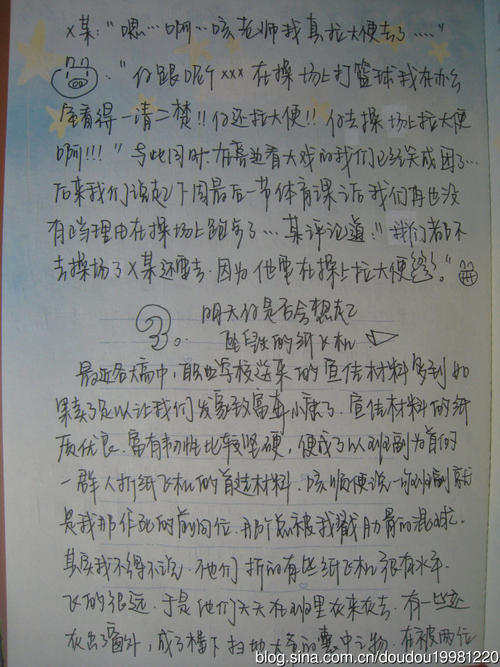 X某：“嗯…啊…咳老师我真拉大便去了……”
：“你跟呢个xxx在操场上打篮球我在办公
室看得一清二楚!!你还拉大便!!你去操场上拉大便
啊!!!”与此同时.在旁边看大戏的我们已经笑成团了…
后来我们谈起下周最后一节体育课之后我们再也没
有啥理由在操场上跑步了….某评论道：“我们都不
去操场了X某还要去.因为他要在操上拉大便。”
3。明天你是否会想起
陪自习的纸飞机
最近各大高中，职业学校送来的宣传材料多到如
果卖了足以让我们发家致富奔小康了.宣传材料的纸
质优良.富有韧性比较坚硬，便成了以班副为首的
一群人折纸飞机的首选材料.咳顺便说一句班副就
是我那作死的前同位.那个总被我戳肋骨的混球.
其实我不得不说.他们折的有些纸飞机很有水平.
飞的很远.于是他们天天在班里灰来灰去.有一些还
灰出了窗外，成了楼下扫地大爷的囊中之物.有被两位
blog.sina.com.cn/doudou19981220